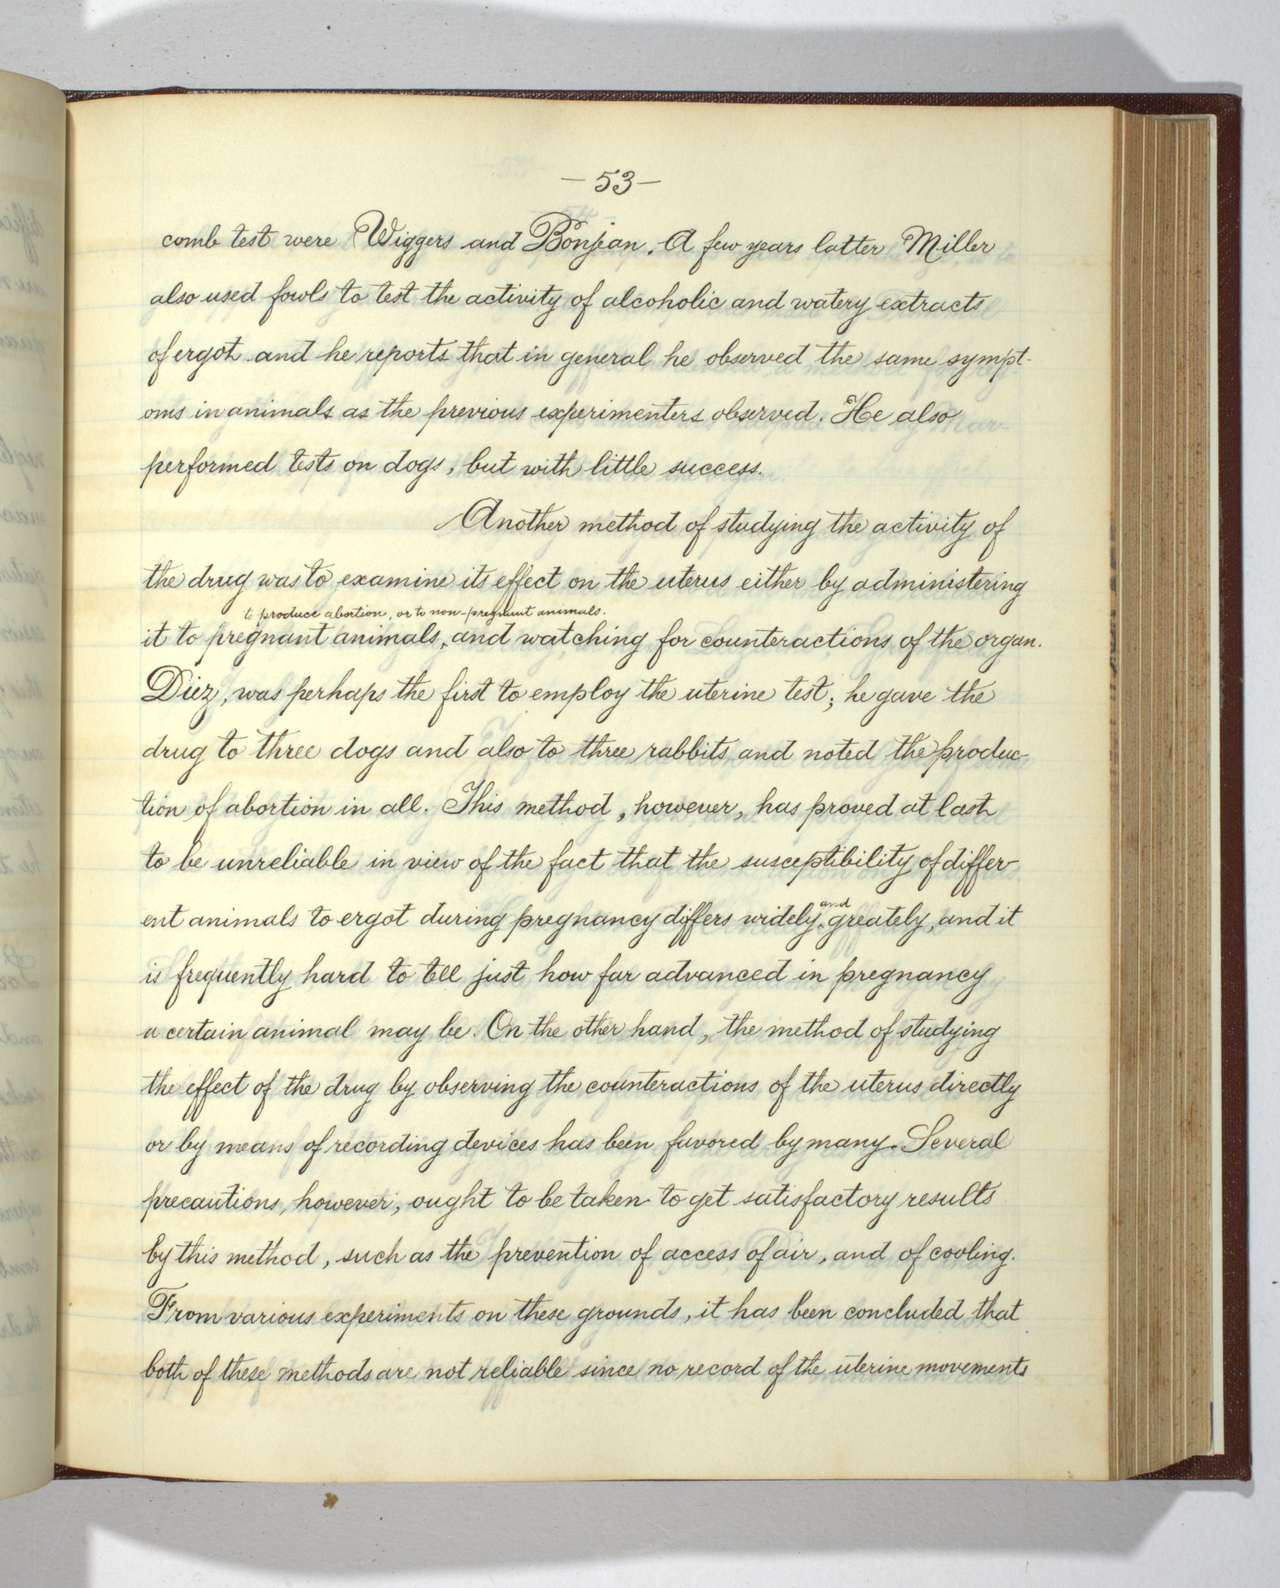 — 53 —
comb test were Wiggers and Bonjean. A few years latter Miller
also used fowls to test the activity of alcoholic and watery extracts
of ergot and he reports that in general he observed the same sympt-
oms in animals as the previous experimenters observed. He also
performed tests on dogs, but with little success.
Another method of studying the activity of
the drug was to examine its effect on the uterus either by administering
to produce abortion, or to non-pregnant animals.
it to pregnant animals, and watching for counteractions of the organ.
Diez, was perhaps the first to employ the uterine test; he gave the
drug to three dogs and also to three rabbits and noted the produc-
tion of abortion in all. This method, however, has proved at last
to be unreliable in view of the fact that the susceptibility of differ-
and
ent animals to ergot during pregnancy differs widely greately, and it
is frequently hard to tell just how far advanced in pregnancy
a certain animal may be. On the other hand, the method of studying
the effect of the drug by observing the counteractions of the uterus directly
or by means of recording devices has been favored by many. Several
precautions, however, ought to be taken to get satisfactory results
by this method, such as the prevention of access of air, and of cooling.
From various experiments on these grounds, it has been concluded that
both of these methods are not reliable since no record of the uterine movements